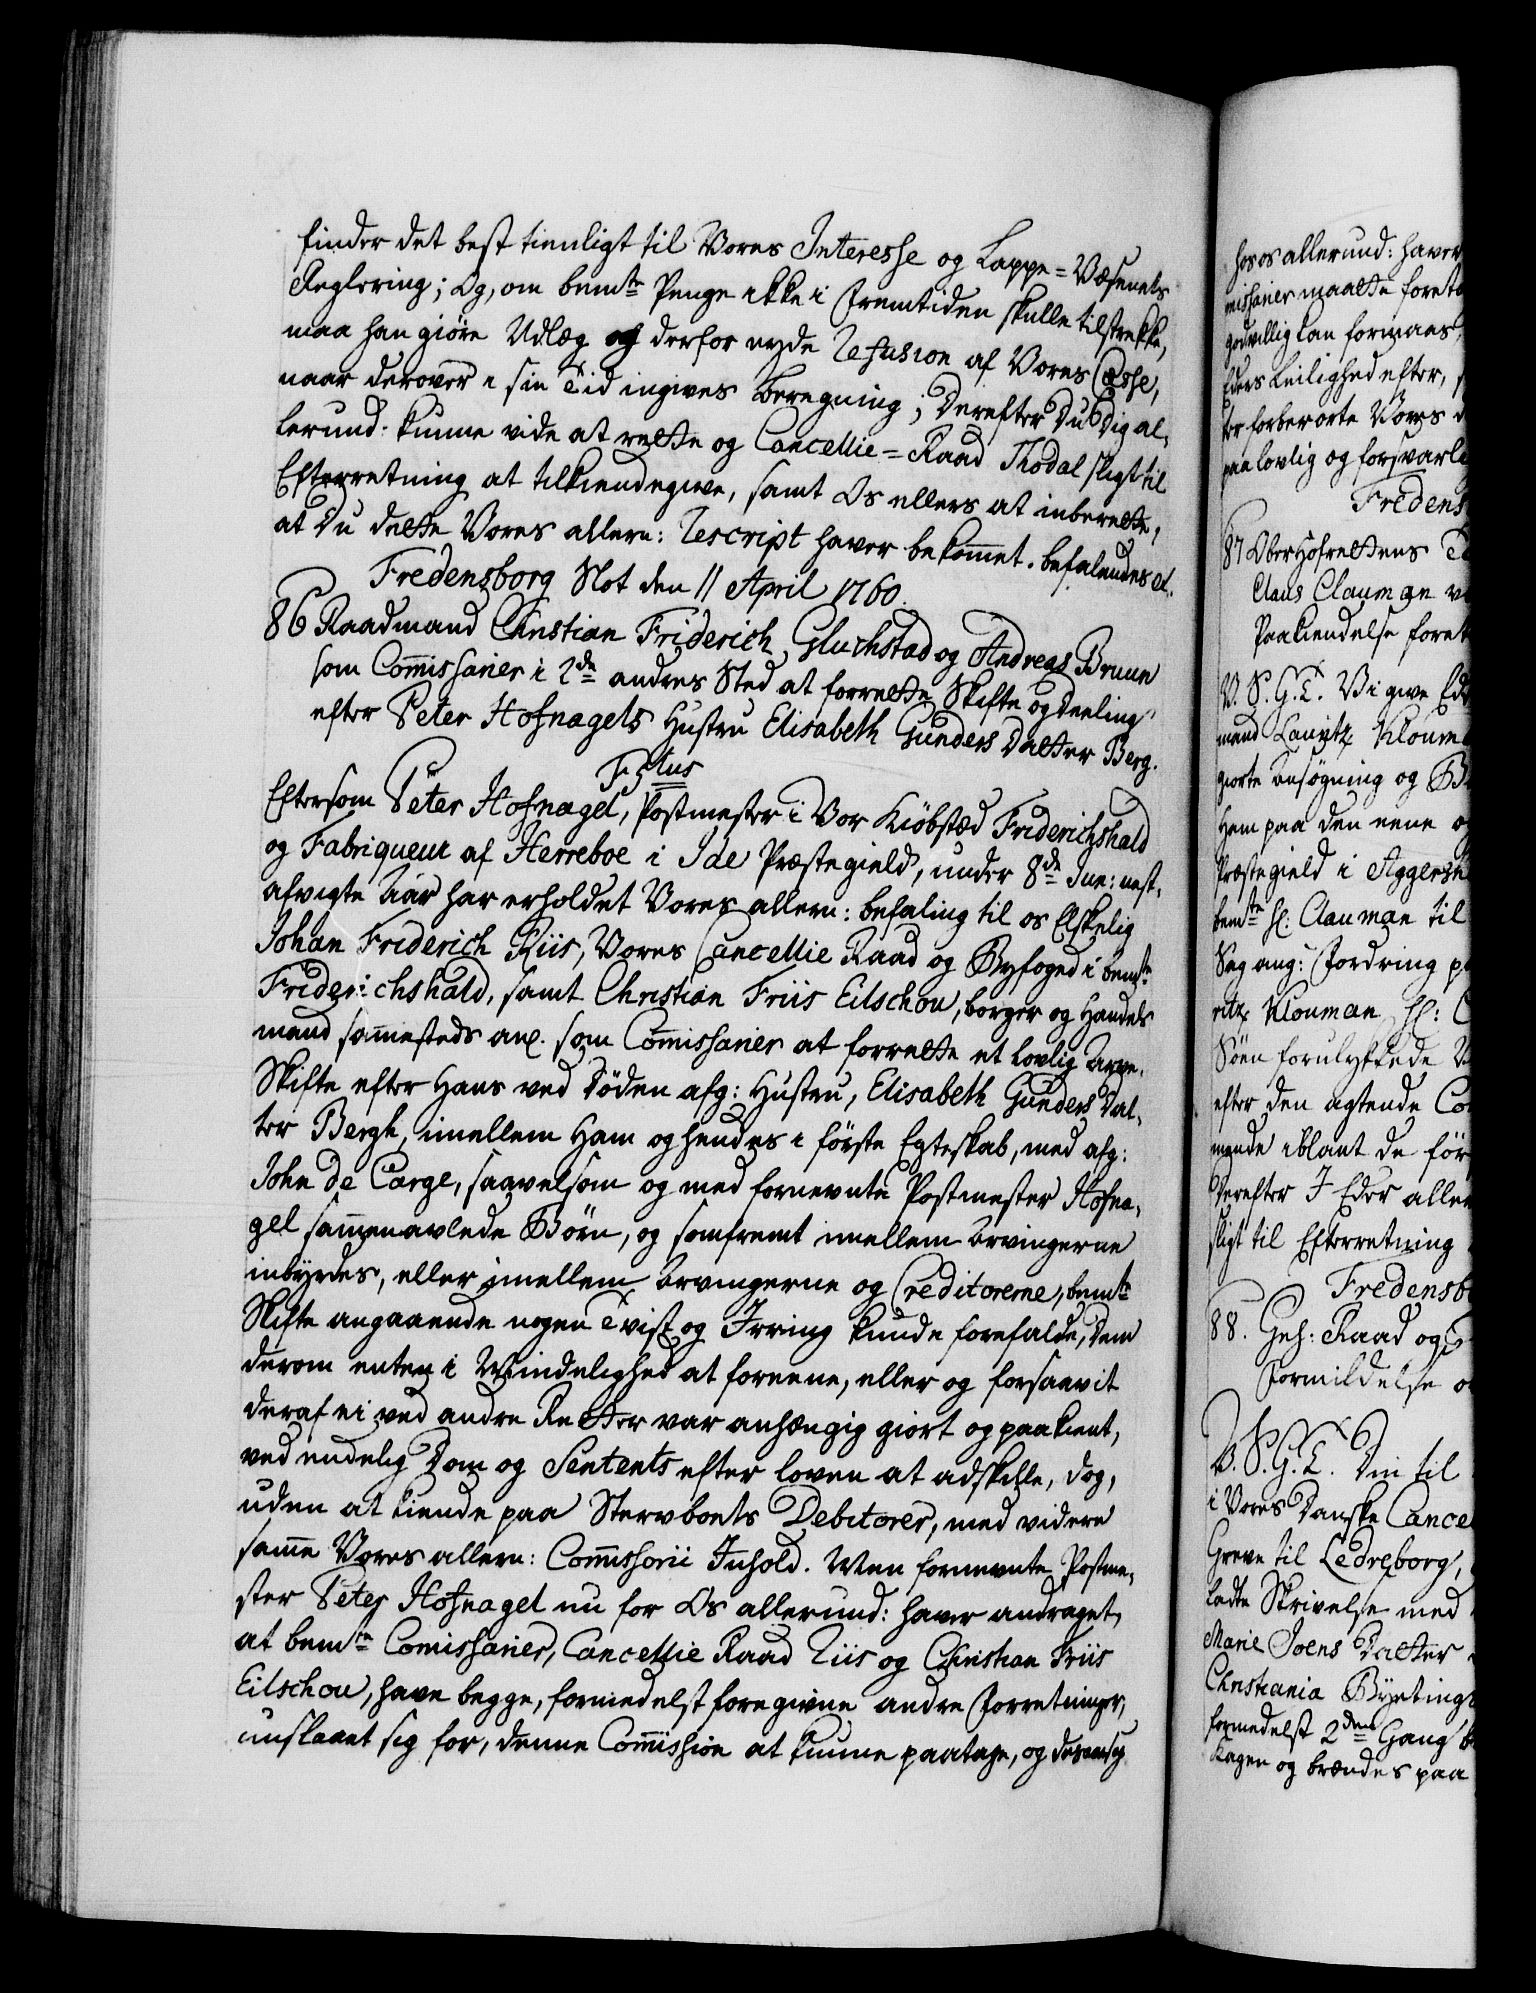 finder det best tienligt til Vores Interesse og Lappe-Væsenets
Reglering; Og, om bemte Penge ikke i Fremtiden skulle tilstrekke,
maa han giöre Udlæg og derfor nyde Refusion af Vores Casse,
naar derover i sin Tid ingives beregning; Derefter Du Dig al-
lerund: kunne vide at rette og Cancellie-Raad Thodal sligt til
Efterretning at tilkiendegive, samt Os ellers at inberette,
at Du dette Vores allern: Rescript haver bekommet. befalendes etc.
Fredensborg Slot den 11 April 1760.
86 Raadmand Christian Friderich Gluchstad og Andreas Bruun
som Commissarier i 2de andres Sted at forrette Skifte og deeling
efter Peter Hofnagels Hustru Elisabeth Gunders Datter Berg.
F. 5tus
Eftersom Peter Hofnagel, Postmester i Vor Kiöbstæd Friderichshald
og Fabriqueur af Herreboe i Ide Præstegield, under 8de Jun: nest-
afvigte Aar har erholdet Vores allern: befaling til os Elskelig
Johan Friderich Riis, Vores Cancellie Raad og Byfoged i bemte
Friderichshald, samt Christian Friis Eilschou, borger og Handels
mand sammesteds anl. som Commissarier at forrette et lovlig Arve-
Skifte efter Hans ved Döden afg: Hustru, Elisabeth Gunders Dat-
ter Bergh, imellem Ham og hendes i förste Egteskab, med afg:
John de Carge, saavelsom og med fornevnte Postmester Hofna-
gel sammenavlede Börn, og somfremt imellem Arvingerne
inbyrdes, eller imellem Arvingerne og Creditorerne, bemte
Skifte angaaende nogen Tvist og Irring kunde forefalde, Dem
derom enten i Mindelighed at foreene, eller og forsaavit
deraf ei ved andre Retter var anhængig giort og paakient,
ved endelig Dom og Sentents efter loven at adskille, dog,
uden at kiende paa Stervboets Debitorer, med videre
samme Vores allern: Commissorii Inhold. Men fornevnte Postme-
ster Peter Hofnagel nu for Os allerund: haver andraget,
at bemte Comissarier, Cancellie Raad Riis og Christian Friis
Eilschou, have begge, formedelst foregivne andre Forretninger,
unslaaet sig for, denne Commission at kunne paatage, og
hos os allerund: haver
missarier maatte foret
godvillig kan formaas,
Eders Leilighed efter,
ter forberorte Vores
paa lovlig og forsvarl
Fredens
87 OberHofrettens
Claus Clauman
Paakiendelse foret
V. S. G. T. Vi give Ed
mand Lauritz Kloum
giorte Ansögning og B
Ham paa den eene
Præstegield i Aggersh
bemte Hl: Clauman til
Sag ang: Fordring
ritz Klouman, Hl:
Söen forulykkede
efter den agtende Co
mende iblant de för
Derefter I Eder aller
sligt til Efterretning
Fredensb
88. Geh: Raad og
Formildelse
V. S. G. T. Din til
i Vores Danske Cance
Greve til Ledreborg,
ladte Skrivelse med
Marie Joens Datter
Christiania Byeting
formedelst 2den Gang
Kagen og brændes paa